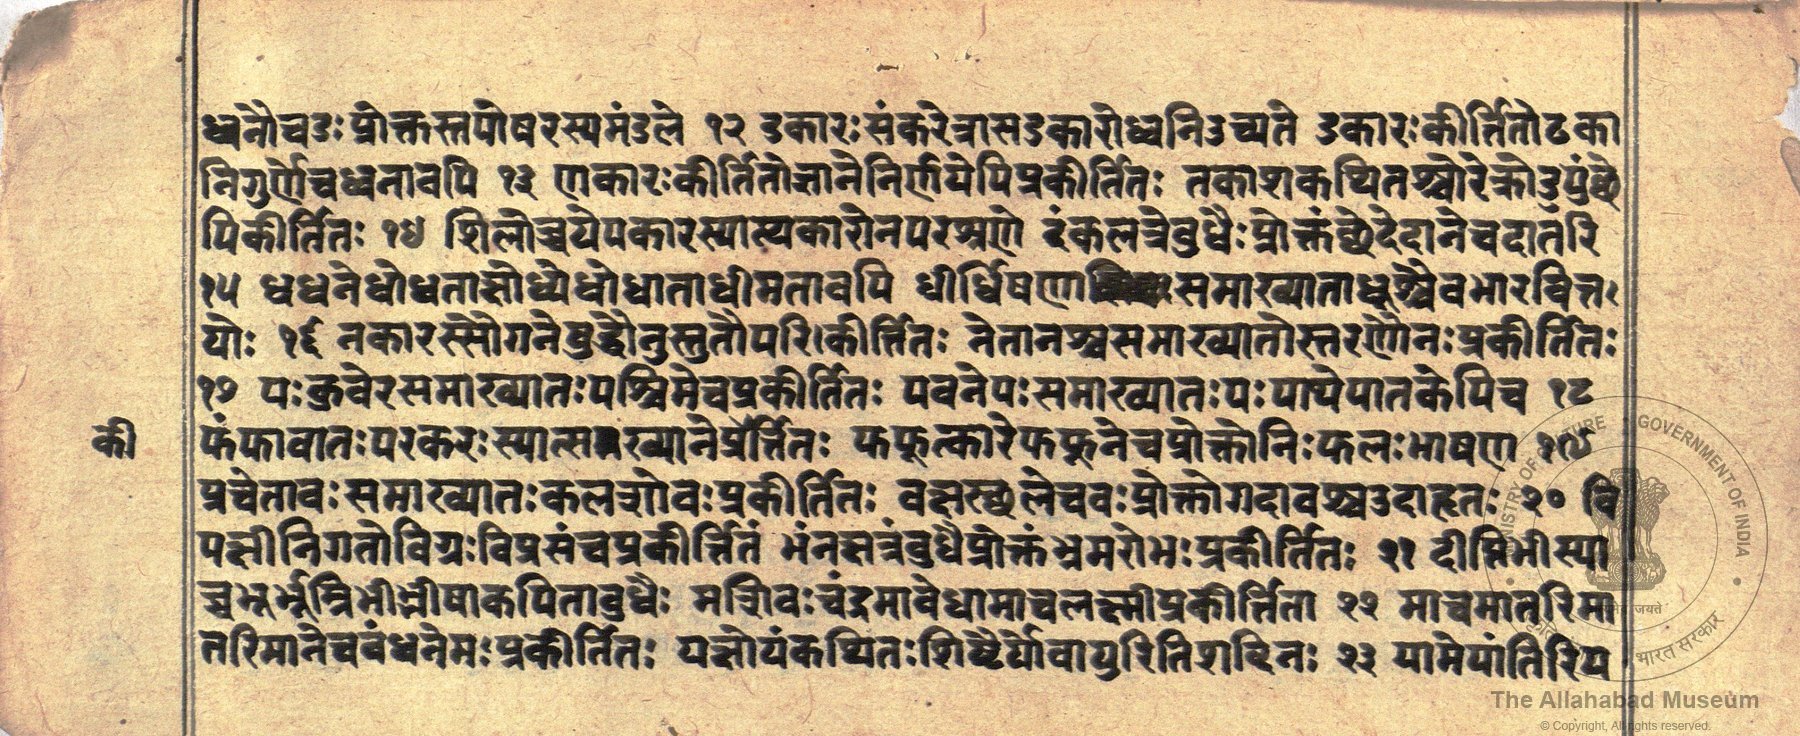 ध्वनौचडः प्रोक्तस्तपोषरस्यमंडले १२ डकारः संकरेत्रासडकारोध्वनिउच्यते डकारःकीर्तितोढका
निगुर्णेचध्वनावपि १३ णकारःकीर्तितोज्ञानेनिर्णयेपिप्रकीर्तितः तकाशकथितश्चोरेक्रोडुपुंछे
पिकीर्तितः १४ शिलोच्चयेपकारस्यास्थकारोनपरश्रणे दंकलत्रेबुधैः प्रोक्तंछेदेदानेचदातरि
१५ धधनेधोधताज्ञौध्येधोधाताधीमतावपि धीर्धिषणा समाख्याताधूश्चैवभारवित्त
योः १६ नकारस्सौगनेबुद्धौनुस्तुतौपरिकीर्त्तितः नेतानश्चसमाख्यातोस्तरणौनःप्रकीर्तितः
१७ पःकुवेरसमाख्यातःपश्चिमेचप्रकीर्तितः पवनेपःसमाख्यातःपःपाथेपातकेपिच १८
की फंफावातःपरकरःस्यात् नेप्रर्त्तितः फफूत्कारेफफूनेचप्रोक्तोनिःफलःभाषण १९
प्रचेतावःसमाख्यातःकलशोवःप्रकीर्तितः वक्षस्छलेचवःप्रोक्तोगदावश्चउदाहृतः २० वि
पक्षीनिगतोविग्रःविप्रसंचप्रकीर्त्तितं भंनक्षत्रंबुधैप्रोक्तंभ्रमरोभःप्रकीर्तितः २१ दीप्तिभीस्या
च्चभूर्भूम्रिभीभ्रीषाकपिताबुधैः मशिवःचंद्रमावेधामाचलक्ष्मीप्रकीर्त्तिता २२ माचमातरिमा
तरिमानेचबंधनेमःप्रकीर्तितः यज्ञोयंकथितःशिष्टैर्योवायुरितिशब्दिनः २३ यामेयांतिरिय
The Allahabad Museum
© Copyright, All rights reserved.
MINISTRY OF CULTURE GOVERNMENT OF INDIA
भारत सरकार